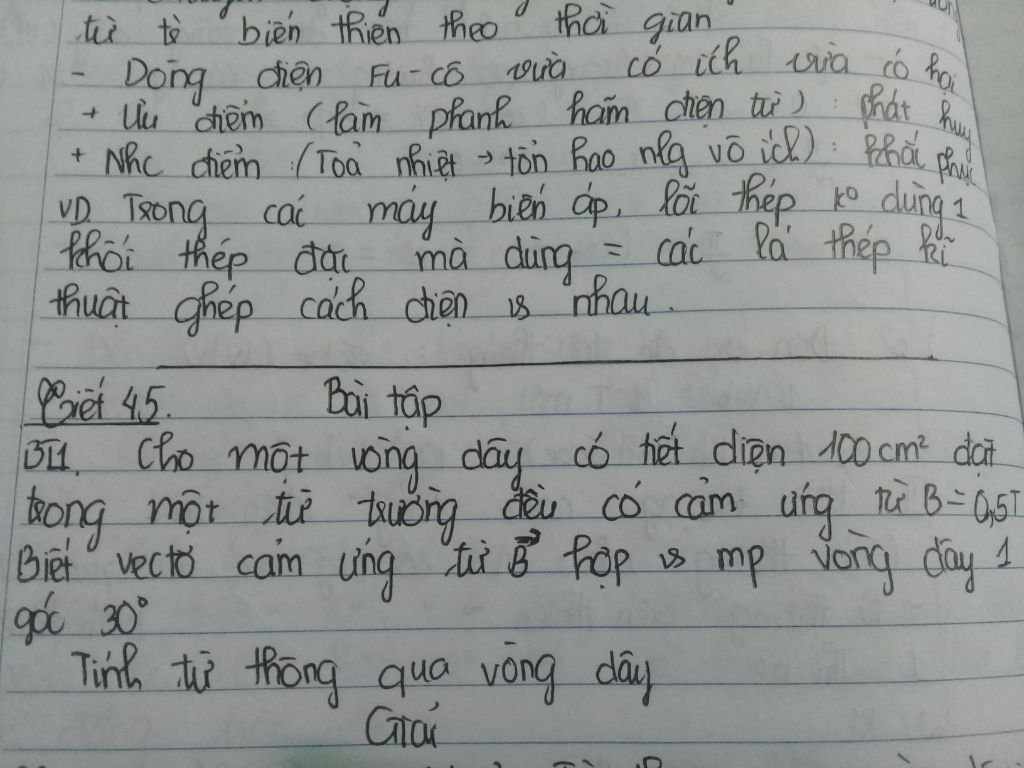 từ tò biến thiên theo thời gian
- Dòng điện Fu-cô vừa có ích vừa có hại
+ Ưu điểm (làm phanh hãm điện từ): phát huy
+ Nhc điểm (Toả nhiệt → tổn hao nlg vô ích): khắc phục
VD. Trong các máy biến áp, lõi thép ko dùng 1
khối thép đặc mà dùng = các lá thép kĩ
thuật ghép cách điện vs nhau.
Tiết 45. Bài tập
BT1. Cho một vòng dây có tiết diện 100 cm² đặt
trong một từ trường đều có cảm ứng từ B = 0,5T
Biết vectơ cảm ứng từ B⃗ hợp vs mp vòng dây 1
góc 30°
Tính từ thông qua vòng dây
Giải